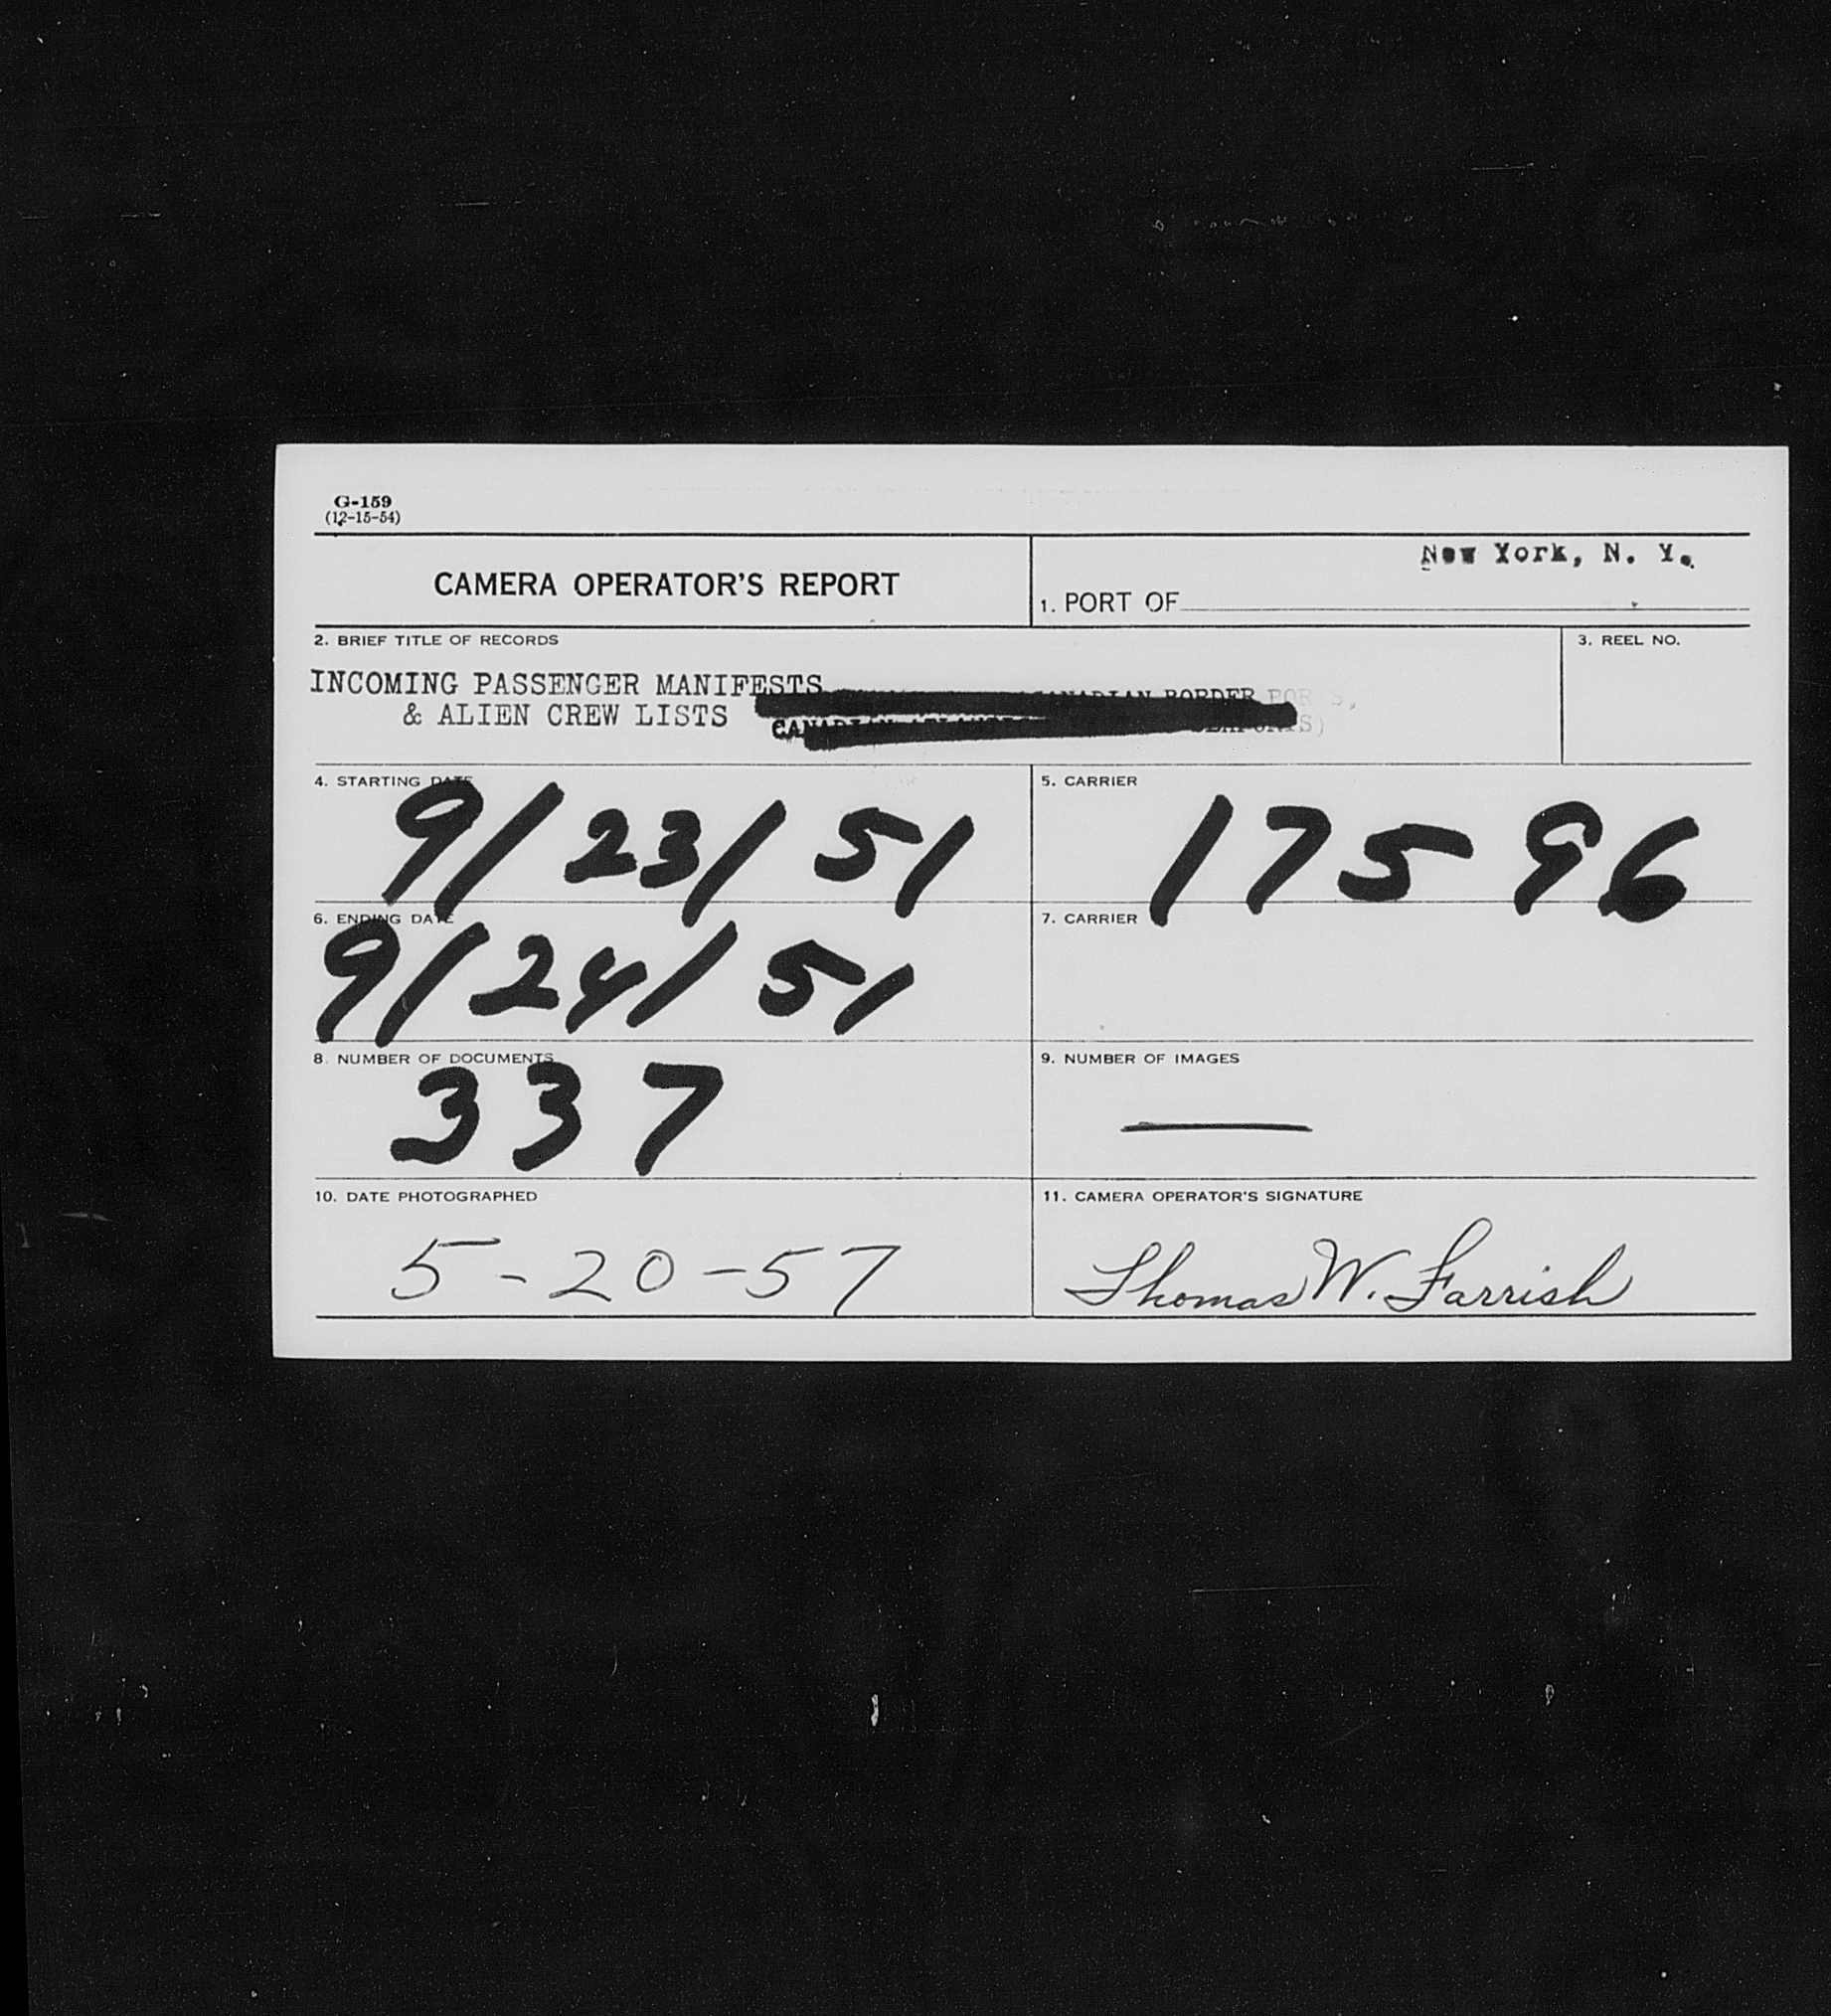 G-159
(12-15-54)
CAMERA OPERATOR'S REPORT
New York, N. Y.
1. PORT OF
2. BRIEF TITLE OF RECORDS
3. REEL NO.
INCOMING PASSENGER MANIFESTS
CANADIAN BORDER
& ALIEN CREW LISTS
4. STARTING DATE
9/23/51
5. CARRIER
17596
6. ENDING DATE
9/24/51
7. CARRIER
8. NUMBER OF DOCUMENTS
337
9. NUMBER OF IMAGES
—
10. DATE PHOTOGRAPHED
5-20-57
11. CAMERA OPERATOR'S SIGNATURE
Thomas W. Farrish